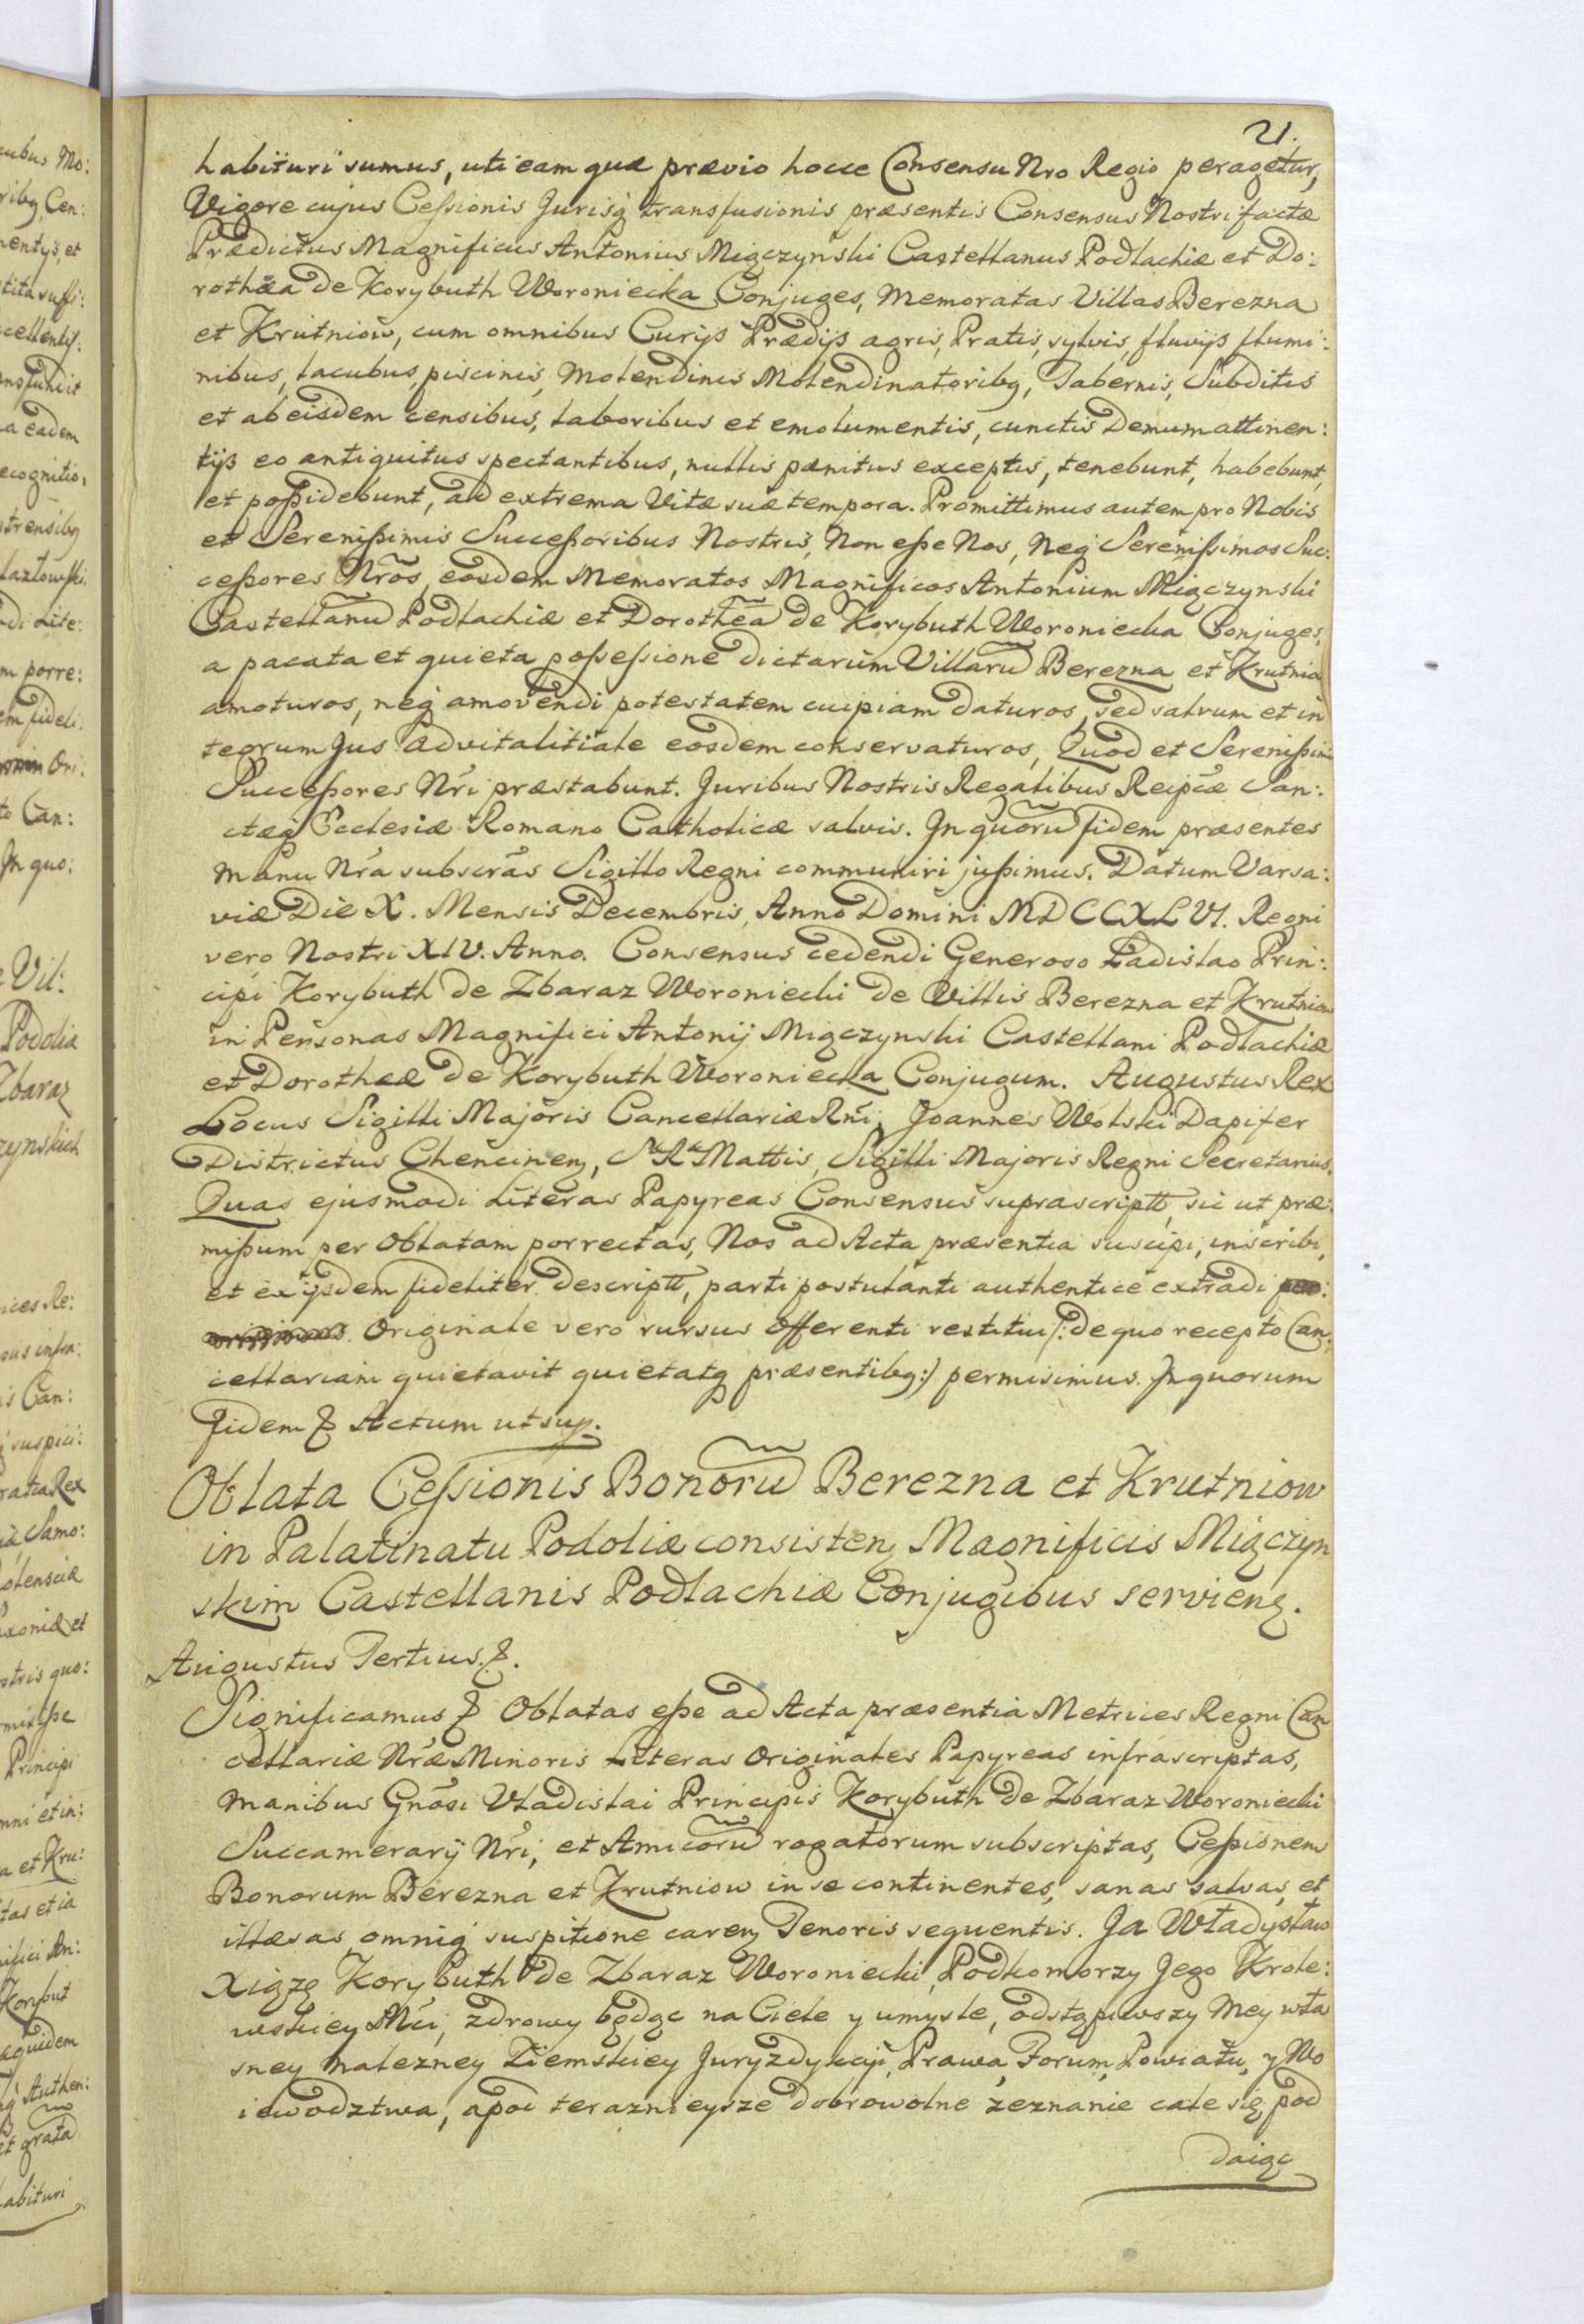 21.
habituri sumus, uti eam quæ prævio hocce Consensu Nro Regio peragetur,
Vigore cujus Cessionis Jurisq transfusionis præsentis Consensus Nostri factæ
Prædictus Magnificus Antonius Miączynski Castellanus Podlachiæ et Do:
rothæa de Korybuth Woroniecka Conjuges, Memoratas Villas Berezna
et Krutniow, cum omnibus Curijs Prædijs agris, Pratis, sylvis, fluvijs flumi:
nibus, lacubus, piscinis, Molendinis Molendinatoribq, Tabernis, Subditis
et ab eisdem censibus, laboribus et emolumentis, cunctis Demum attinen:
tijs eo antiquitus spectantibus, nullis pænitus exceptis, tenebunt, habebunt,
et possidebunt, ad extrema Vitæ suæ tempora. Promittimus autem pro Nobis
et Serenissimis Successoribus Nostris, Non esse Nos, Neq Serenissimos Suc:
cessores Nros, eosdem Memoratos Magnificos Antonium Miączynski
Castellanu Podlachiæ et Dorothea de Korybuth Woroniecka Conjuges,
a pacata et quieta possessione dictarum Villaru Berezna et Krutnia
amoturos, neq amovendi potestatem cuipiam daturos, sed salvum et in
tegrum Jus Advitalitiale eosdem conservaturos, Quod et Serenissimi
Successores Nri præstabunt. Juribus Nostris Regalibus Reipcæ San:
ctæq Ecclesiæ Romano Catholicæ salvis. In quoru fidem præsentes
Manu Nra subscras Sigillo Regni communiri jussimus. Datum Varsa:
viæ Die X. Mensis Decembris, Anno Domini MDCCXLVI. Regni
vero Nostri XIV. Anno. Consensus cedendi Generoso Ladislao Prin:
cipi Korybuth de Zbaraz Woroniecki de Villis Berezna et Krutniow
in Personas Magnifici Antonij Miączynski Castellani Podlachiæ
et Dorotheæ de Korybuth Woroniecka Conjugum. Augustus Rex
Locus Sigilli Majoris Cancellariæ Rni, Joannes Wolski Dapifer
Districtus Chencinen, S R Mattis, Sigilli Majoris Regni Secretarius.
Quas ejusmodi Literas Papyreas Consensus suprascriptt, sic ut præ:
missum per Oblatam porrectas, Nos ad Acta præsentia suscipi, inscribi,
et ex ijsdem fideliter descriptt, parti postulanti authentice extradi
Originale vero rursus Offerenti restitui /: de quo recepto Can:
cellariam quietavit quietatq præsentibq :/ permisimus. In quorum
fidem & Actum ut sup.
Oblata Cessionis Bonoru Berezna et Krutniow
in Palatinatu Podoliæ consisten, Magnificis Miączyn
skim Castellanis Podlachiæ Conjugibus servien.
Augustus Tertius &.
Significamus & Oblatas esse ad Acta præsentia Metrices Regni Can
cellariæ Nræ Minoris Literas Originales Papyreas infrascriptas,
Manibus Gnosi Vladislai Principis Korybuth de Zbaraz Woroniecki
Succamerarij Nri, et Amicoru rogatorum subscriptas, Cessionem
Bonorum Berezna et Krutniow in se continentes, sanas salvas, et
illæsas, omniq suspitione caren Tenoris sequentis. Ja Władysław
Xiąze Korybuth de Zbaraz Woroniecki, Podkomorzy Jego Krole:
wskiey Mci, zdrowy będąc na Ciele y umysle, odstąpiwszy Mey wła
sney nalezney Ziemskiey Juryzdykcji, Prawa, Forum, Powiatu, y Wo
iewodztwa, apod teraznieysze dobrowolne zeznanie cale się pod
daiąc